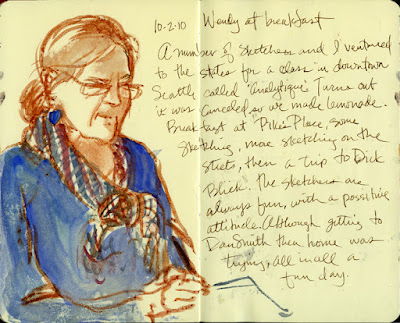 10-2-10 Wendy at breakfast
A number of sketchers and I ventured
to the states for a class in downtown
Seattle called "analytique". Turns out
it was canceled, so we made lemonade.
Breakfast at Pike's Place, some
sketching, more sketching on the
streets, then a trip to Dick
Blick. The sketchers are
always fun, with a possitive
attitude. Although getting to
DanSmith then home was
trying, all in all a
fun day.